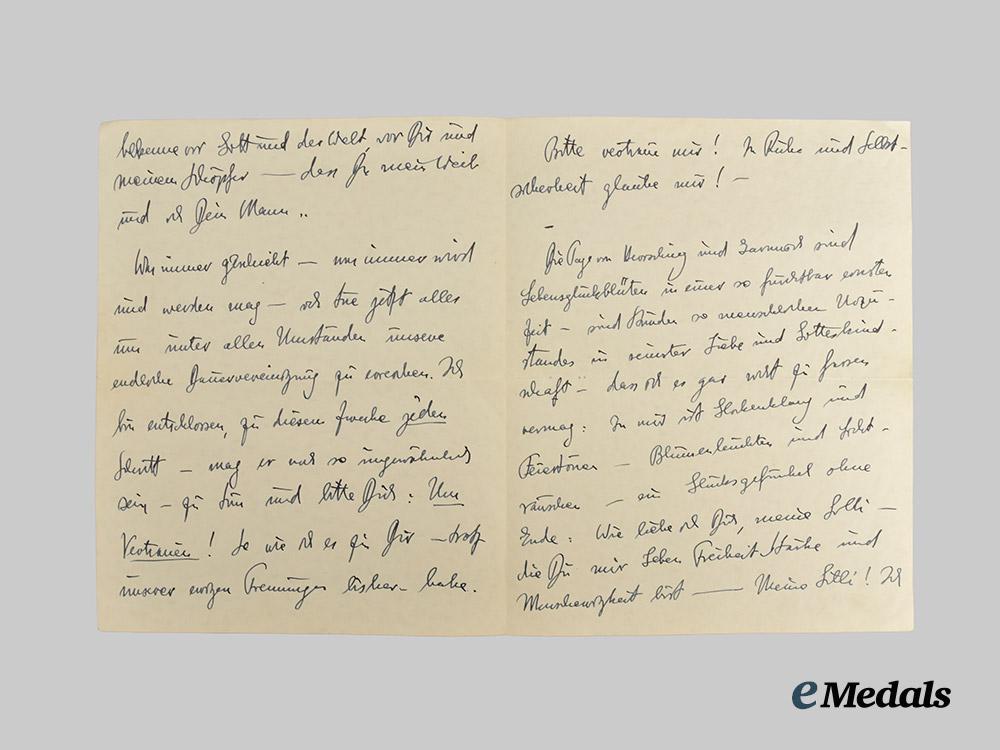 bekenne vor Gott und der Welt, vor Dir und
meinem Schöpfer — dass Du mein Weib
und ich Dein Mann ..
Was immer geschieht — was immer wird
und werden mag — ich tue jetzt alles
um unter allen Umständen unsere
endliche Dauervereinigung zu erreichen. Ich
bin entschlossen, zu diesem Zwecke jeden
Schritt — mag er noch so ungewöhnlich
sein — zu tun und bitte Dich: Um
Vertrauen! So wie ich es zu Dir — trotz
unserer ewigen Trennungen bisher — habe.
Bitte vertraue mir! In Ruhe und Selbst-
sicherheit glaube mir! —
—
Die Tage von und sind
Lebensglückblüten in einer so furchtbar ernsten
Zeit — sind so menschlichen
standes in reinster Liebe und Gotteskind-
schaft — dass ich es gar nicht zu fassen
vermag: In mir ist Glockenklang und
Feiertönen — Blumenleuchten und
rauschen — ein Glücksgefunkel ohne
Ende: Wie liebe ich Dich, meine Lilli —
die Du mir Leben Freiheit Stärke und
bist — Meine Lilli! Ich
eMedals